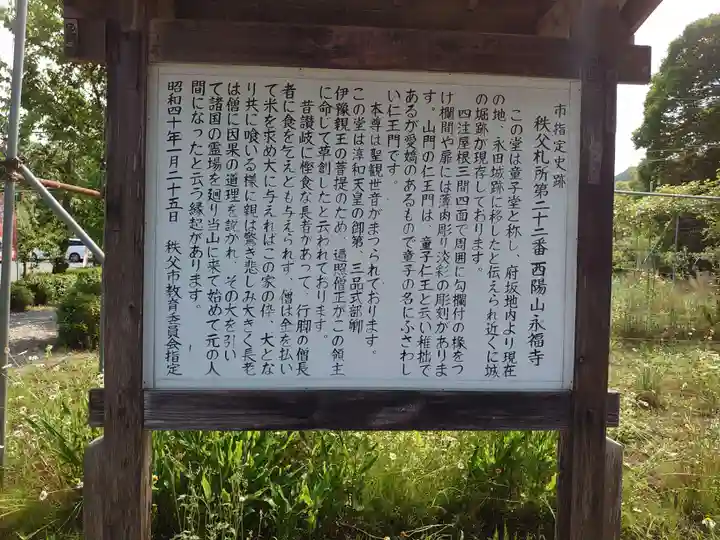 市指定史跡
秩父札所第二十二番西陽山永福寺
この堂は童子堂と称し、府坂地内より現在
の地、永田城跡に移したと伝えられ近くに城
の堀跡が現存しております。
四注屋根三間四面で周囲に勾欄付の椽をつ
け欄間や扉には薄肉彫り淡彩の彫刻がありま
す。山門の仁王門は、童子仁王と云い稚拙で
あるが愛嬌のあるもので童子の名にふさわし
い仁王門です。
本尊は聖観世音がまつられております。
この堂は淳和天皇の御弟、三品式部卿
伊豫親王の菩提のため、遍照僧正がこの領主
に命じて草創したと云われております。
昔讃岐に慳食な長者があって、行脚の僧長
者に食を乞えども与えられず、僧は金を払い
て米を求め犬に与えればこの家の伜、犬とな
り共に喰いる様に親は驚き悲しみ大きく長老
は僧に因果の道理を説かれ、その犬を引い
て諸国の霊場を廻り当山に来て始めて元の人
間になったと云う縁起があります。
昭和四十年一月二十五日 秩父市教育委員会指定